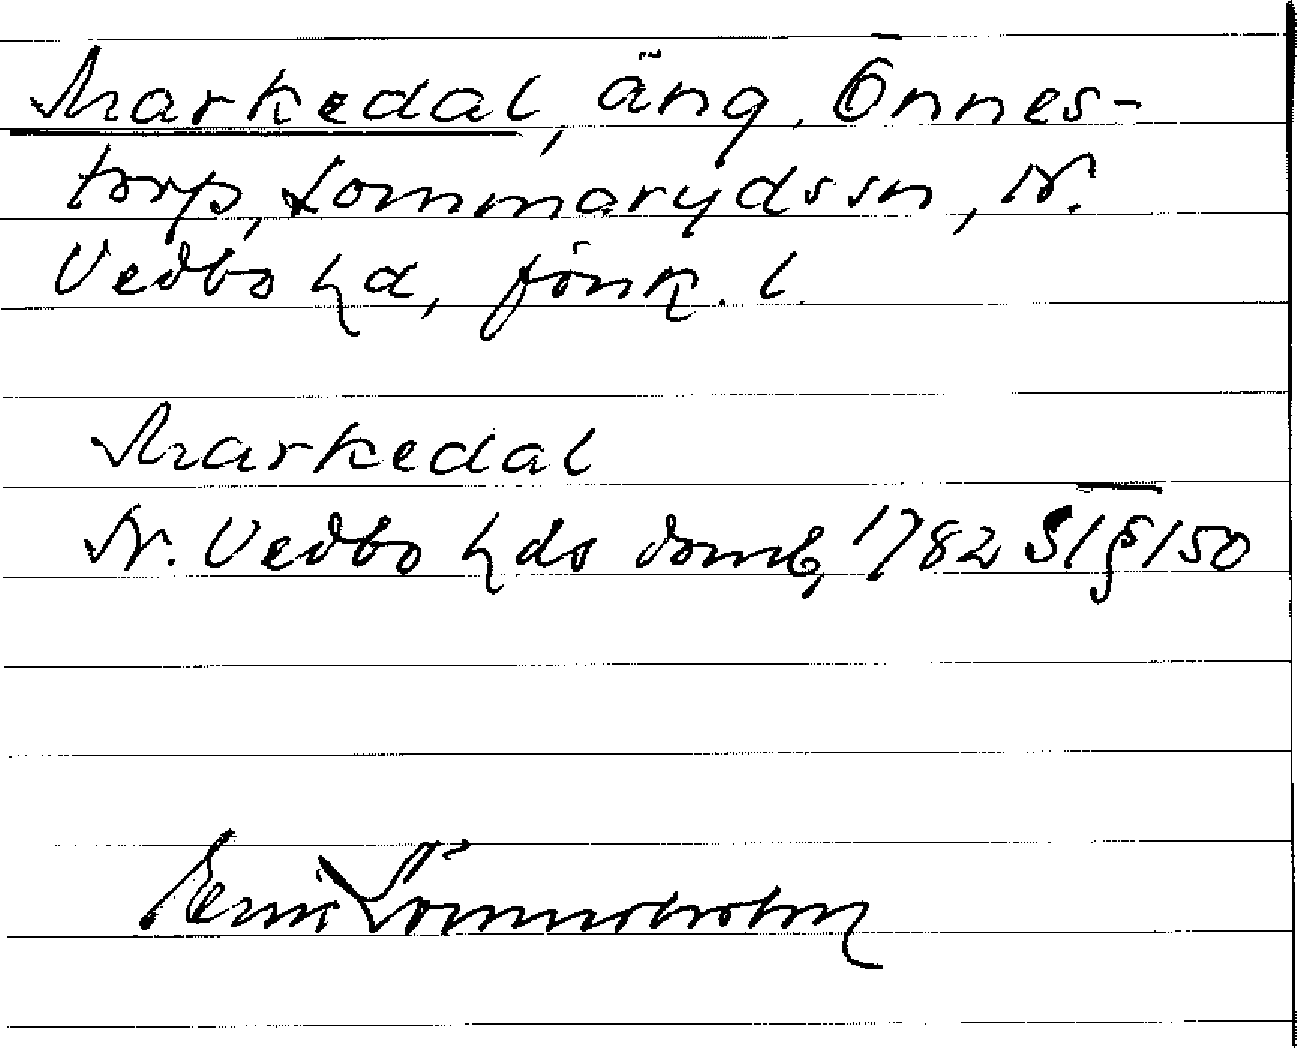 Markedal, äng, Önnes-
torp, Lommarydssn, N.
Vedbo hd, Jönk. l.
Markedal
N. Vedbo hds domb, 1782 S/§/50